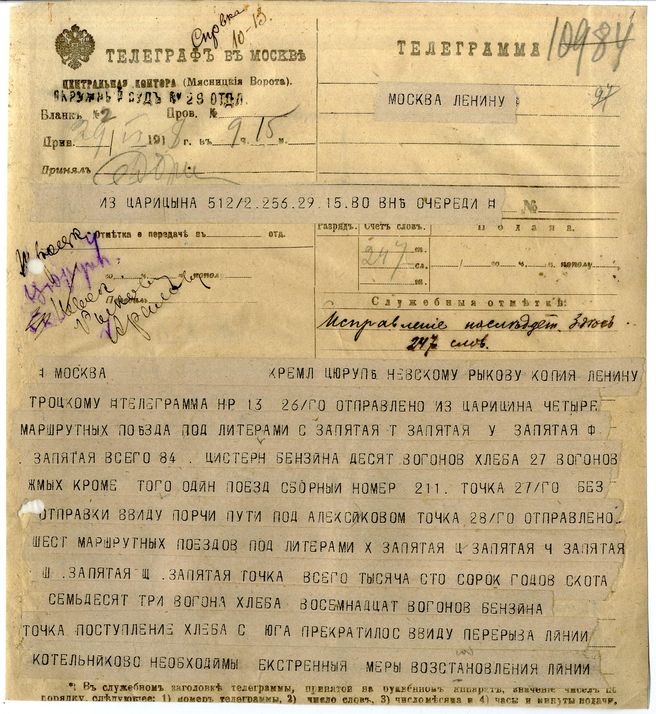 Справка
10-13
ТЕЛЕГРАФЪ ВЪ МОСКВѢ
ЦЕНТРАЛЬНАЯ КОНТОРА (Мясницкія Ворота).
ОКРУЖНЫЙ СУДЪ № 29 ОТДЛ.
Бланкъ № 2 Пров. №
Прин. 29/VI 1918 г. въ 9 ч. 15 м.
Принялъ
ТЕЛЕГРАММА
10984
МОСКВА ЛЕНИНУ
97
ИЗ ЦАРИЦЫНА 512/2.256.29.15.80 ВНѢ ОЧЕРЕДИ
№
Отмѣтка о передачѣ въ отд.
Разрядъ. Счетъ словъ. Подана.
247
сл. го ч. м. пополу
Служебныя отмѣтки:
Исправленіе послѣдует. Здѣсь
247 слов.
МОСКВА КРЕМЛ ЦЮРУПѢ НЕВСКОМУ РЫКОВУ КОПИЯ ЛЕНИНУ
ТРОЦКОМУ ТЕЛЕГРАММА НР 13 26/ГО ОТПРАВЛЕНО ИЗ ЦАРИЦИНА ЧЕТЫРЕ
МАРШРУТНЫХ ПОЕЗДА ПОД ЛИТЕРАМИ С ЗАПЯТАЯ Т ЗАПЯТАЯ У ЗАПЯТАЯ Ф
ЗАПЯТАЯ ВСЕГО 84 . ЦИСТЕРН БЕНЗИНА ДЕСЯТ ВОГОНОВ ХЛЕБА 27 ВОГОНОВ
ЖМЫХ КРОМЕ ТОГО ОДИН ПОЕЗД СБОРНЫЙ НОМЕР 211. ТОЧКА 27/ГО БЕЗ
ОТПРАВКИ ВВИДУ ПОРЧИ ПУТИ ПОД АЛЕКСИКОВОМ ТОЧКА 28/ГО ОТПРАВЛЕНО
ШЕСТ МАРШРУТНЫХ ПОЕЗДОВ ПОД ЛИТЕРАМИ Х ЗАПЯТАЯ Ц ЗАПЯТАЯ Ч ЗАПЯТАЯ
Ш .ЗАПЯТАЯ Щ .ЗАПЯТАЯ ТОЧКА ВСЕГО ТЫСАЧА СТО СОРОК ГОДОВ СКОТА
СЕМЬДЕСЯТ ТРИ ВОГОНА ХЛЕБА ВОСЕМНАДЦАТ ВОГОНОВ БЕНЗИНА
ТОЧКА ПОСТУПЛЕНИЕ ХЛЕБА С ЮГА ПРЕКРАТИЛОС ВВИДУ ПЕРЕРЫВА ЛИНИИ
КОТЕЛЬНИКОВО НЕОБХОДИМЫ ЕКСТРЕННЫЯ МЕРЫ ВОЗСТАНОВЛЕНИЯ ЛИНИИ
*) Въ служебномъ заголовкѣ телеграммы, принятой на буквенномъ аппаратѣ, значеніе чиселъ по
порядку слѣдующее: 1) номеръ телеграммы, 2) число словъ, 3) число мѣсяца и 4) часы и минуты подачи.